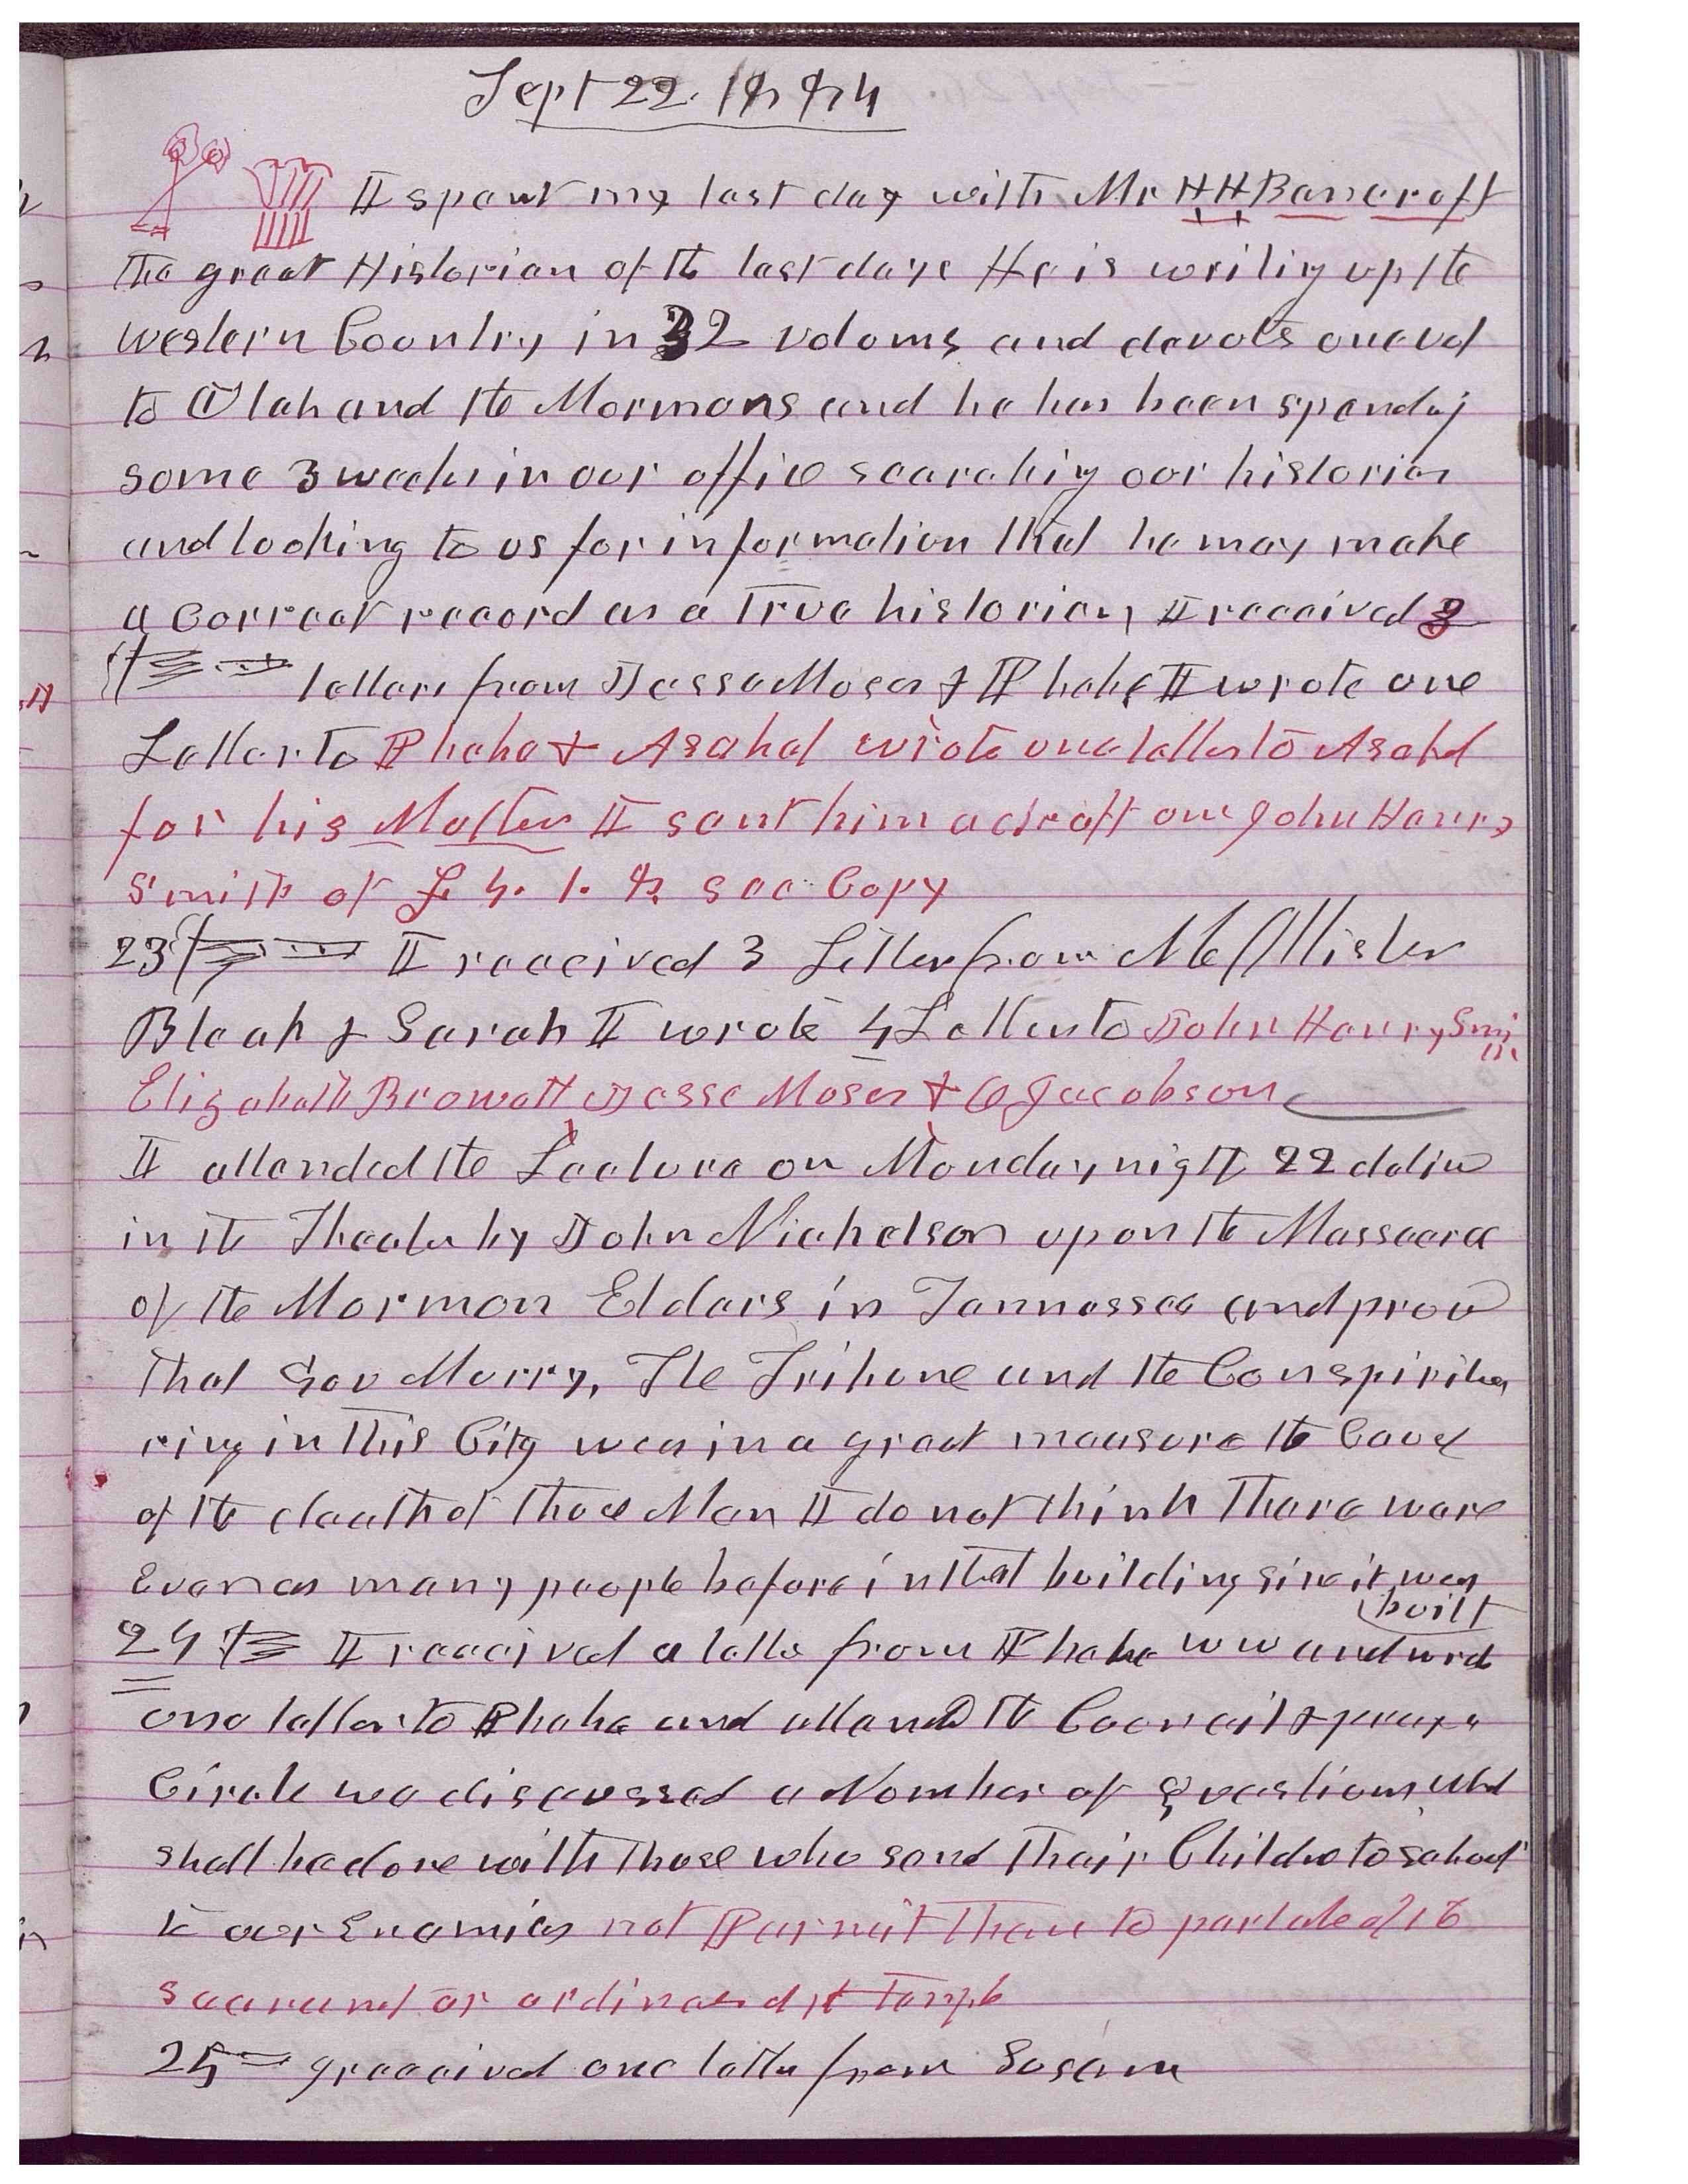 Sept 22. 1884
I spent my last day with Mr H H Bancroft
the great Historian of the last days He is writing up the
western Country in 32 voloms and devots one vol
to Utah and the Mormons and he has been spending
some 3 weeks in our office searching our histories
and looking to us for information that he may make
a Correct record as a True historian, I received 3
letters from Jesse Moses & Phebe I wrote one
Letter to Phebe & Asahel wrote one letter to Asahel
for his Mother I sent him a draft on John Henry
Smith of £4.1.8 see Copy
23 I received 3 Letters from McAllister
Bleak & Sarah I wrote 4 Letters to John Henry Smith
Elizabeth Browett Jesse Moses & O Jacobson
I attended the Lecture on Monday night 22 deliv
in the Theater by John Nicholson upon the Massacre
of the Mormon Elders in Tennessee and prov
that Gov Murry, The Tribune and the Conspiritor
ring in this City was in a great measure the Cause
of the death of those Men I do not think There were
Ever as many people before in that building since it was
built
24 I received a letter from Phebe W W and wrote
one letter to Phebe and attended the Council & prayer
Circle we discussed a Number of Questions What
shall be done with those who send their Children to school
to our Enemies not Permit them to partake of the
sacrament or ordinances of the Temple
25 I received one letter from Susan